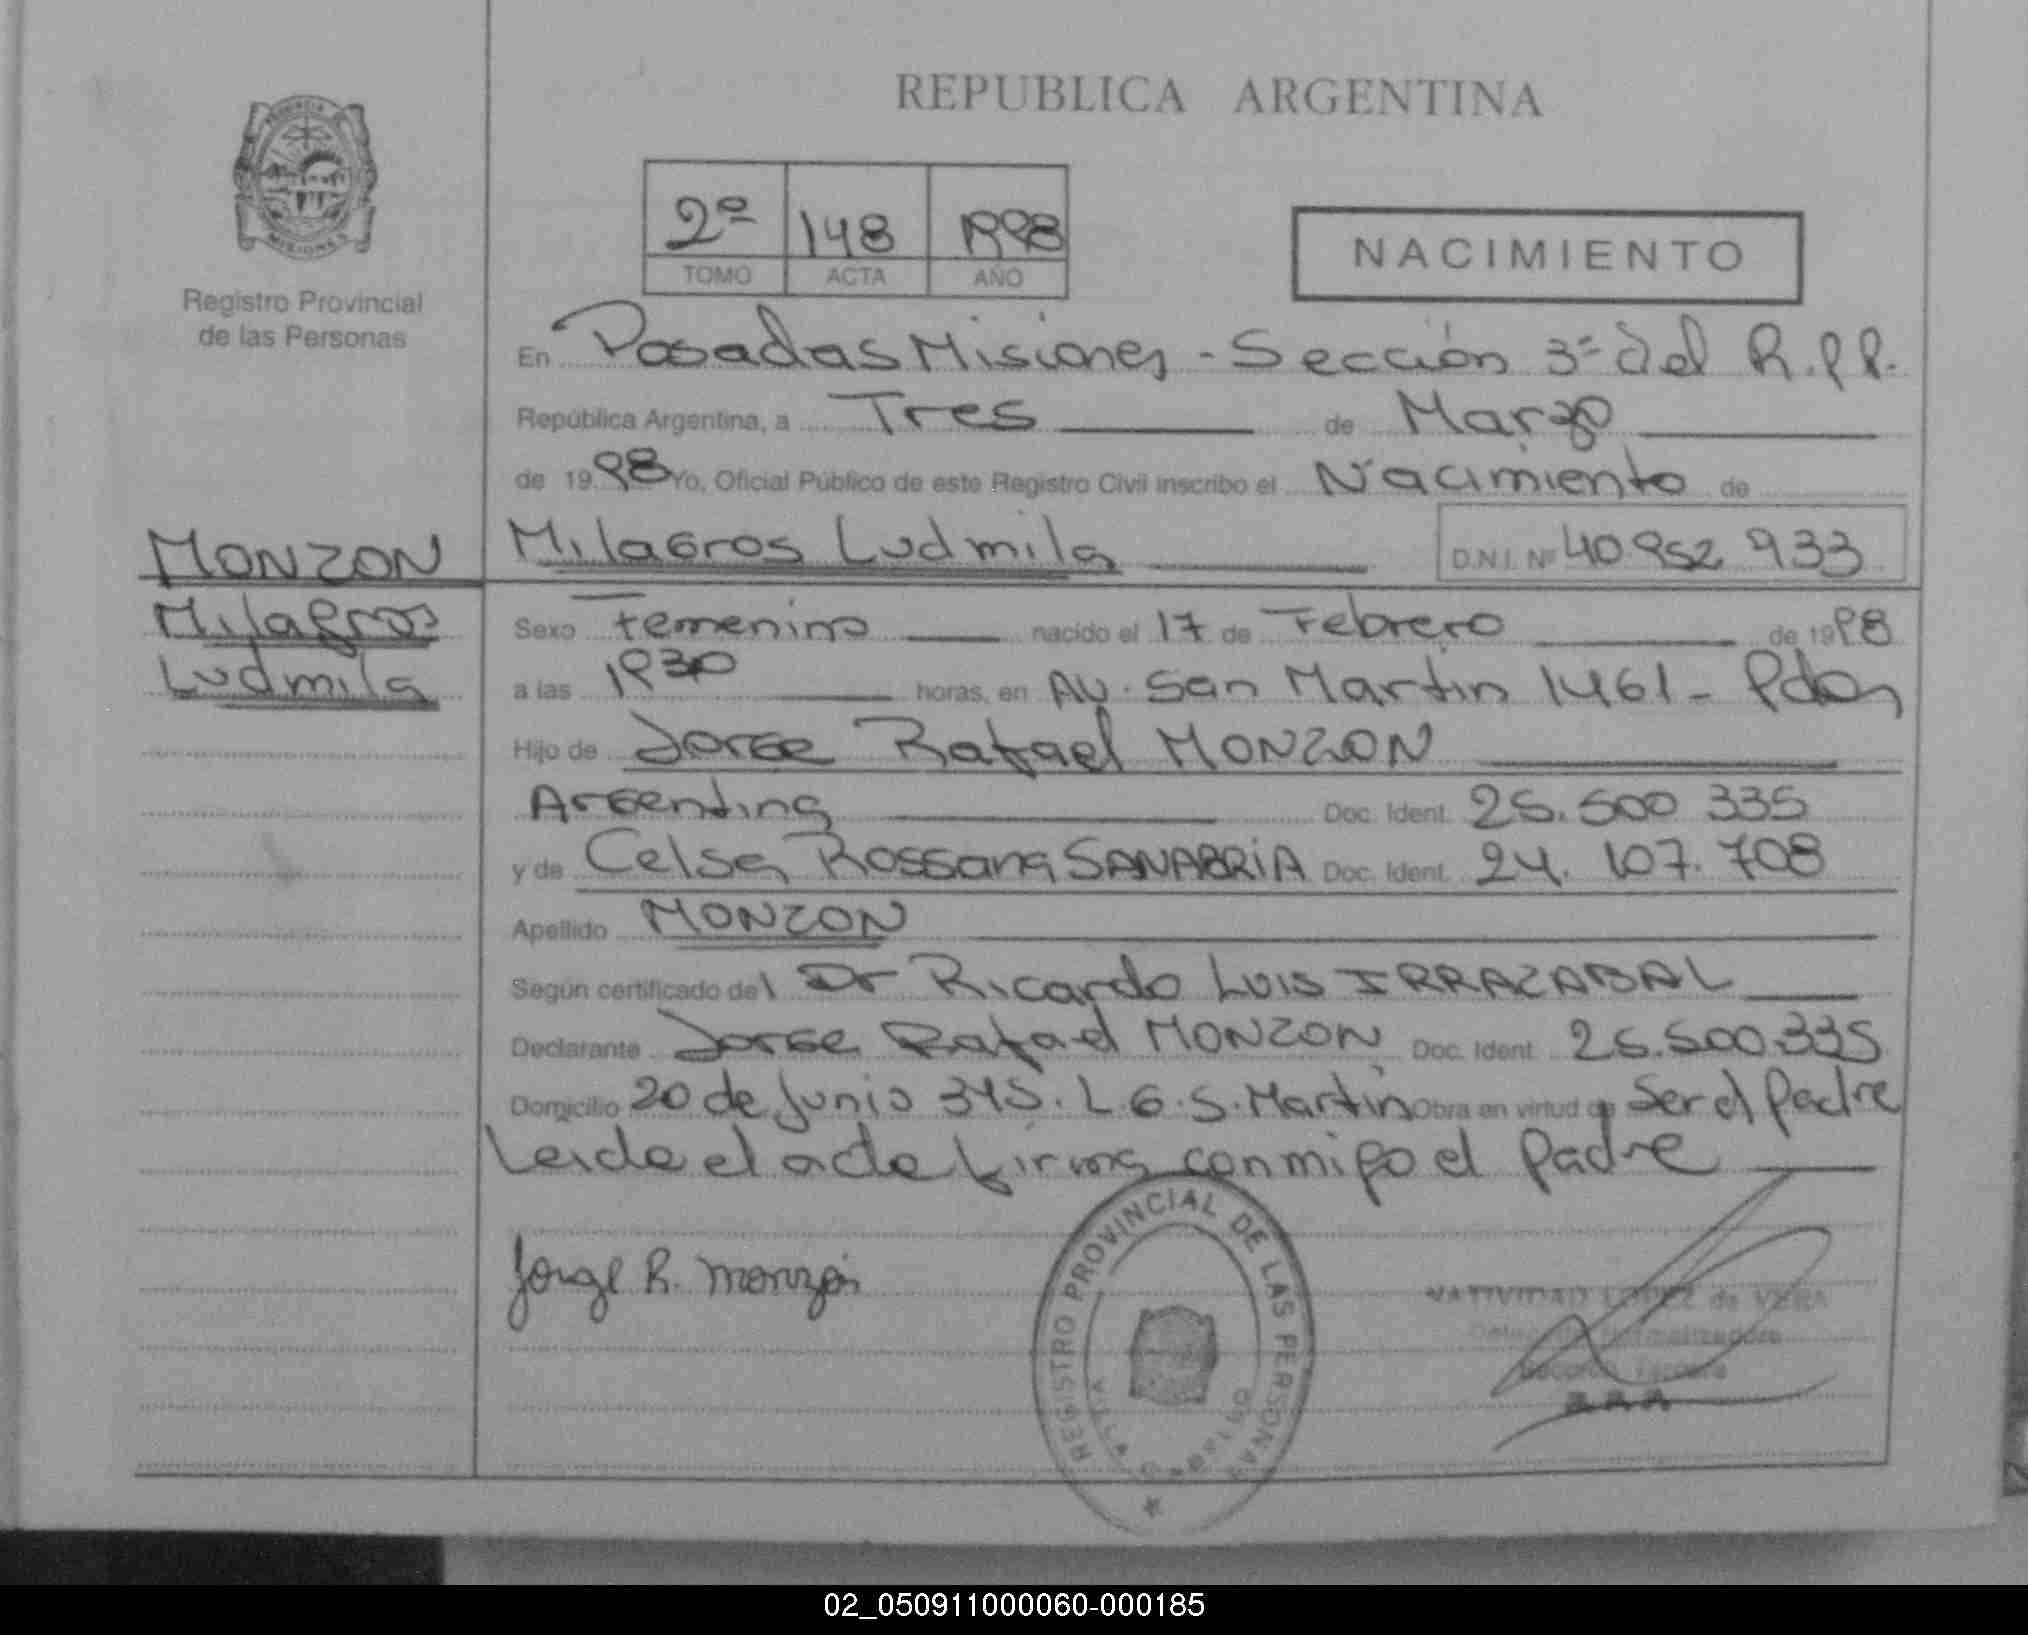 REPUBLICA ARGENTINA
PROVINCIA
MISIONES
Registro Provincial
de las Personas
2º 148 1998
TOMO ACTA AÑO
NACIMIENTO
En Posadas Misiones - Sección 3ª del R.P.P.
República Argentina, a Tres de Marzo
de 1998 Yo, Oficial Público de este Registro Civil inscribo el Nacimiento de
MONZON
Milagros
Ludmila
Milagros Ludmila D.N.I. Nº 40 952 933
Sexo Femenino nacido el 17 de Febrero de 1998
a las 1930 horas, en Av. San Martin 1461 - Pdas
Hijo de Jorge Rafael MONZON
Argentina Doc. Ident. 25.500 335
y de Celsa Rossana SANABRIA Doc. Ident. 24.107.708
Apellido MONZON
Según certificado del Dr Ricardo Luis IRRAZABAL
Declarante Jorge Rafael MONZON Doc. Ident. 25.500.335
Domicilio 20 de Junio 345. L.G.S. Martin Obra en virtud d Ser el Padre
Leida el acta firma conmigo el padre
Jorge R. Monzón
REGISTRO PROVINCIAL DE LAS PERSONAS
NATIVIDAD LOPEZ de VERA
Delegada Normalizadora
Sección Tercera